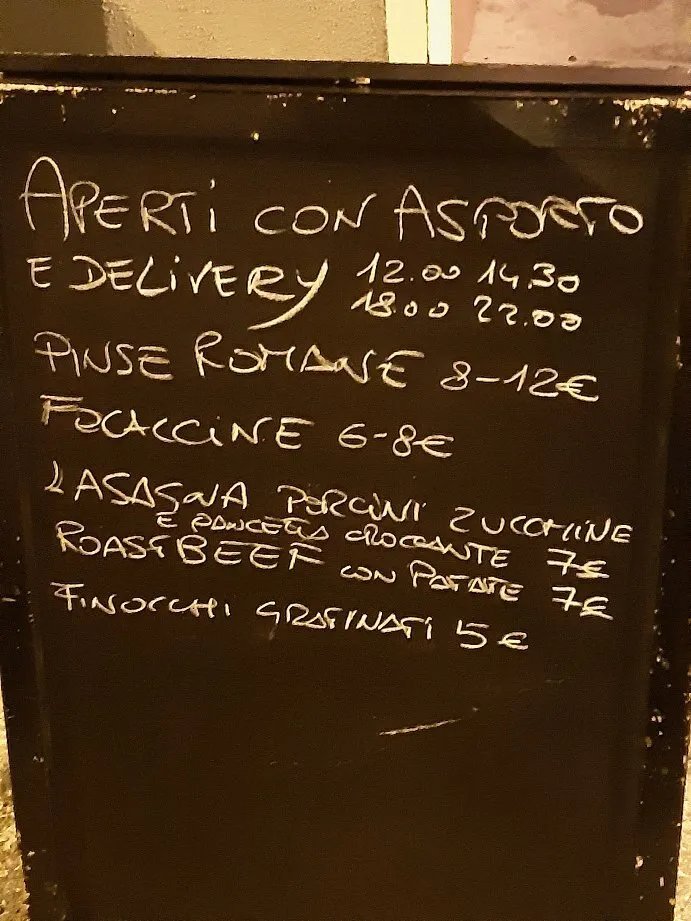 APERTI CON ASPORTO
E DELIVERY 12.00 14.30
18.00 22.00
PINSE ROMANE 8-12€
FOCACCINE 6-8€
LASAGNA PORCINI ZUCCHINE
E PANCETTA CROCCANTE 7€
ROASTBEEF CON PATATE 7€
FINOCCHI GRATINATI 5€